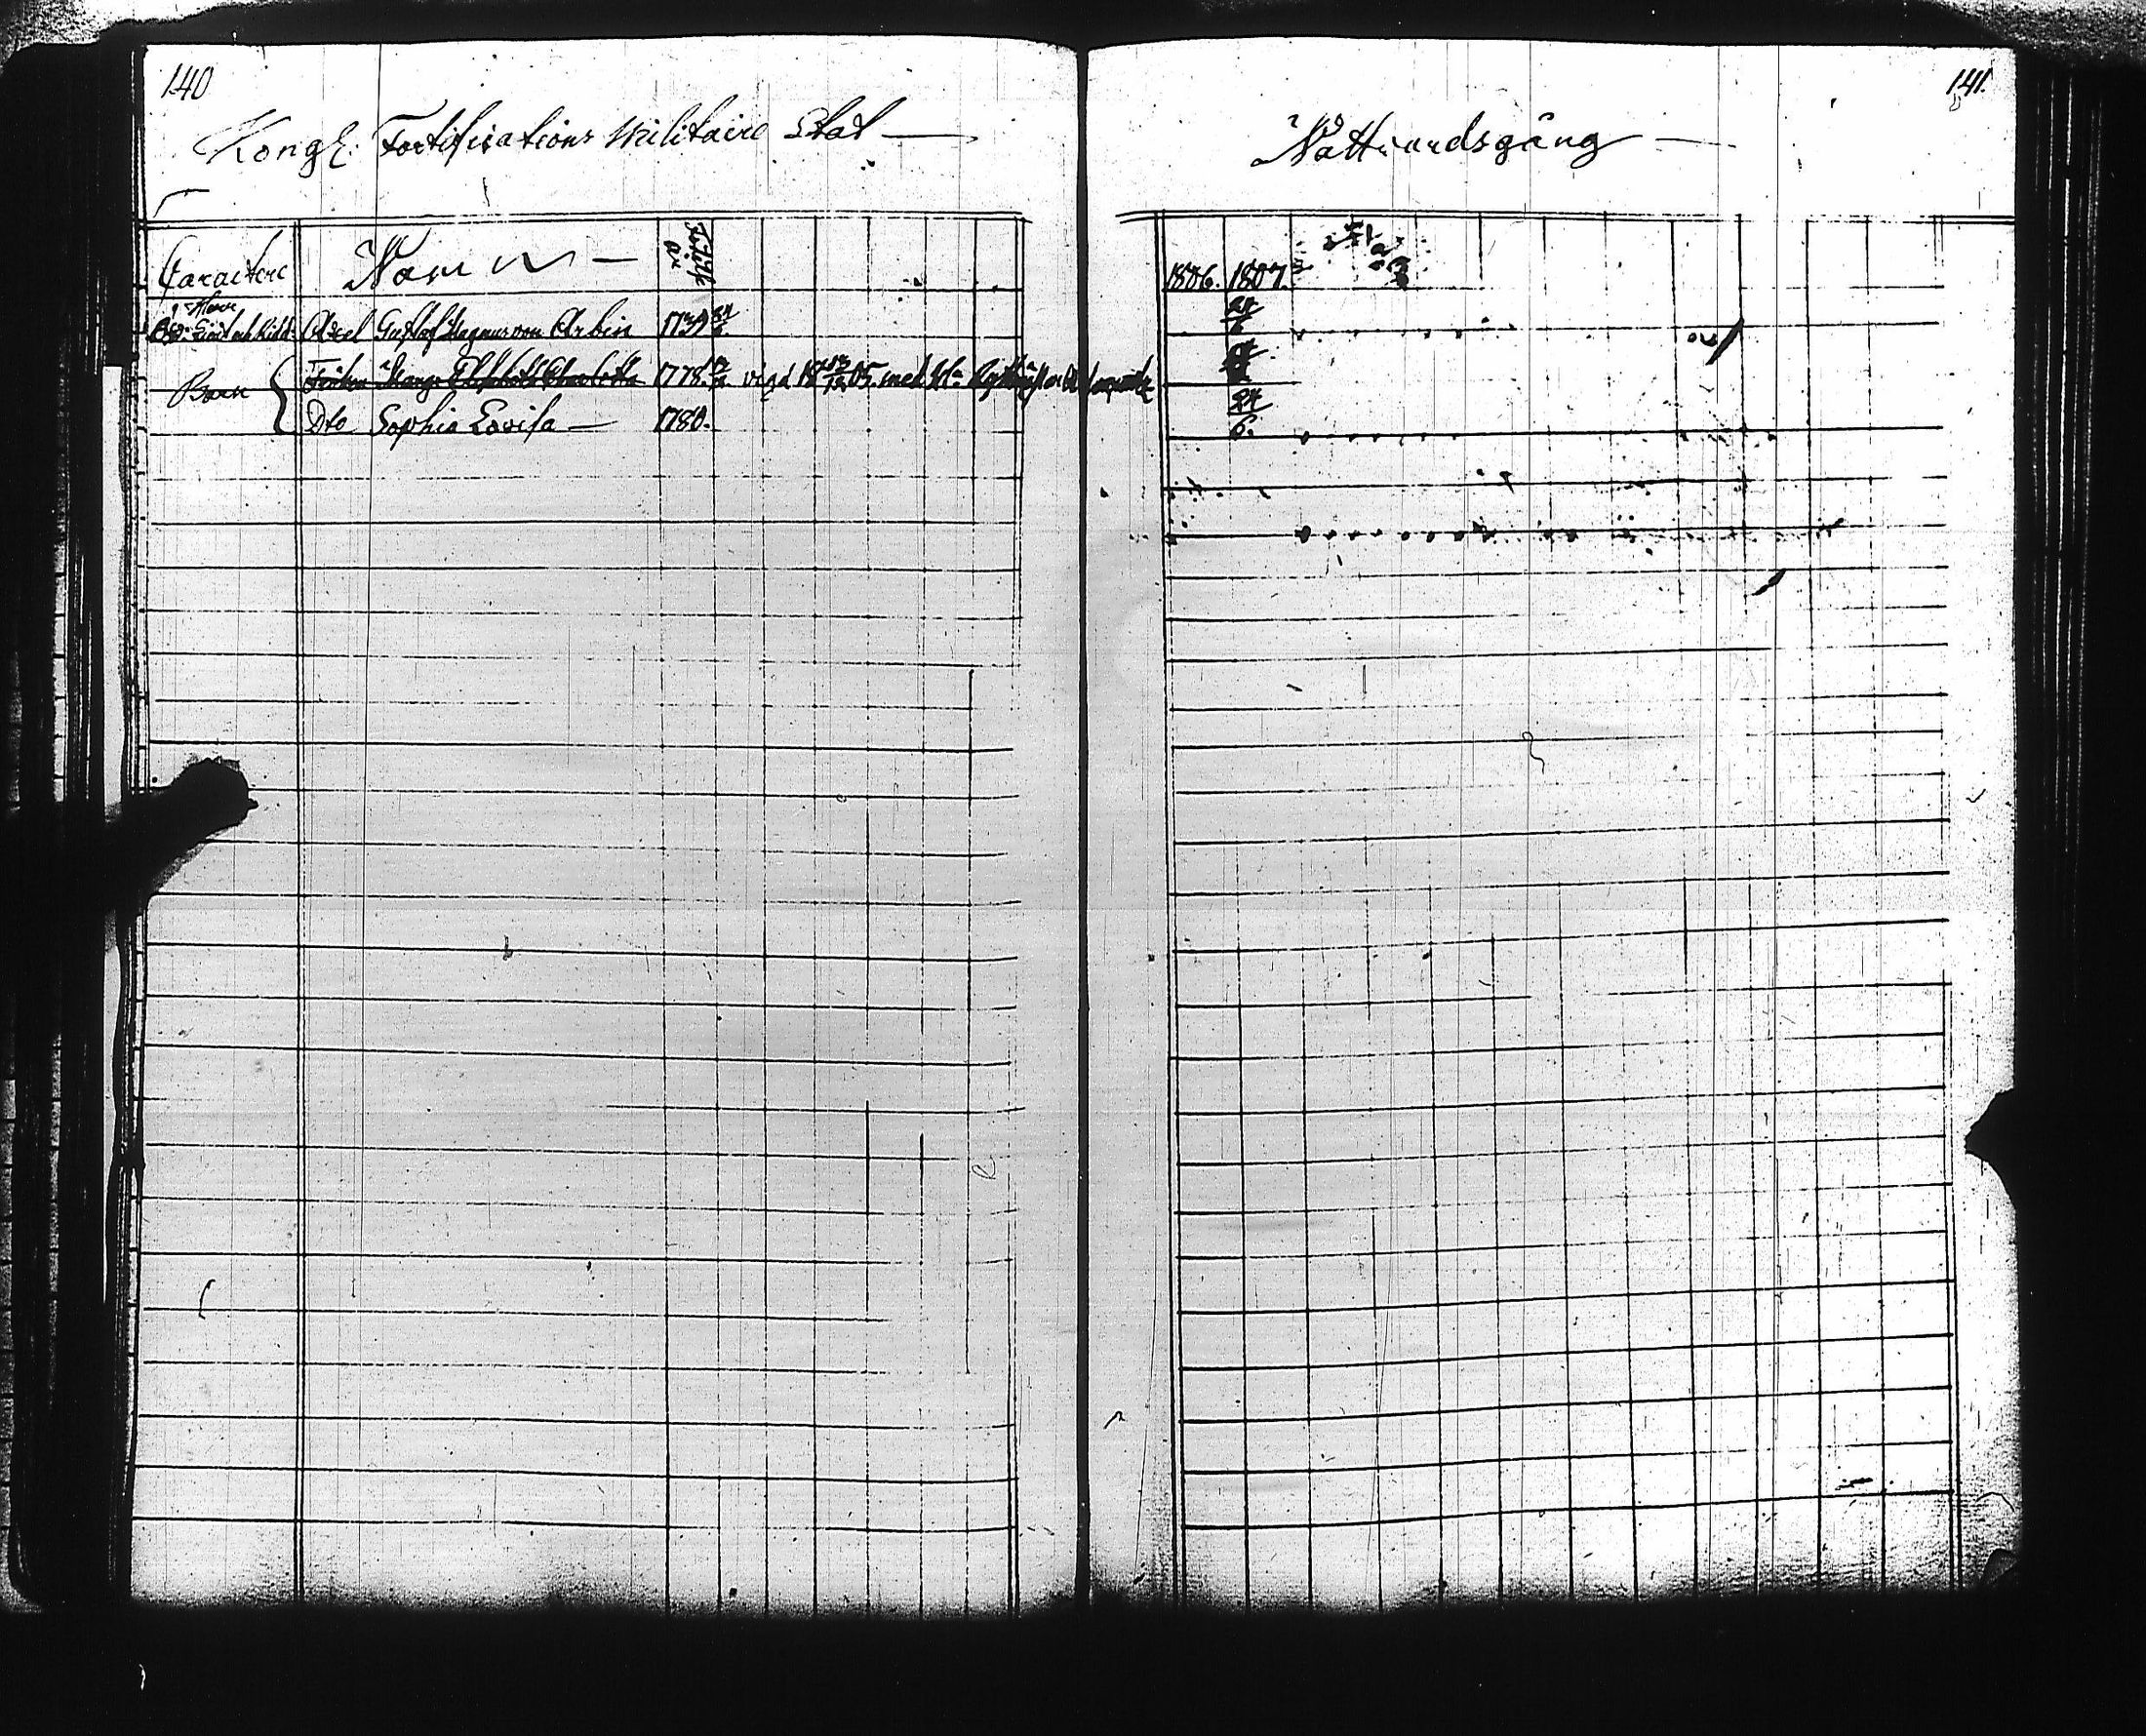 140
Kongl: Fortifications Militaire Stat
Caractere Namn Födelse år
Herr
Axel Gustaf Magnus von Arbin 1739
Barn Fröken Marg: Elisabeth Charlotta 1778. vigd d 05 med Hr
Dto Sophia Lovisa 1780.
141.
Nattvardsgång
1806. 1807.
24
6.
24
6.